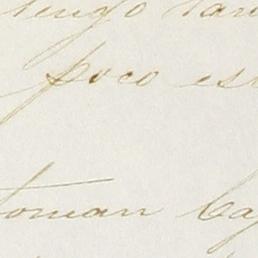 tengo tan
poco es
toman ca